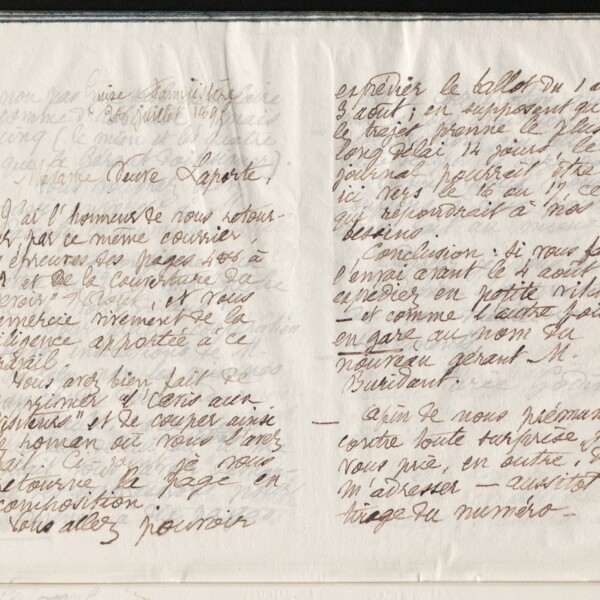 Guise Familistère
26 juillet 189
Madame Veuve Laporte,
J'ai l'honneur de vous retour-
er, par ce même courrier,
es épreuves des pages 485 à
et de la couverture du
evoir" d'Août, et vous
emercie vivement de la
iligence apportée à ce
ravail.
Vous avez bien fait de
"l'avis aux
" et de couper ainsi
le roman où vous l'avez
ait. je vous
etourne la page en
composition.
Vous allez pouvoir
expédier le ballot du 1 a
3 août ; en supposant qu
le trajet prenne le plus
long délai 14 jours, le
journal pourrait être
ici vers le 16 ou 17 ce
qui répondrait à nos
besoins
Conclusion : Si vous fa
l'envoi avant le 4 août
expédier en petite vite
— et comme l'autre foi
en gare, au nom du
nouveau gérant M.
Buridant.
— Afin de nous prémun
contre toute surprise, j
vous prie, en outre, d
m'adresser — aussitôt
tirage du numéro —